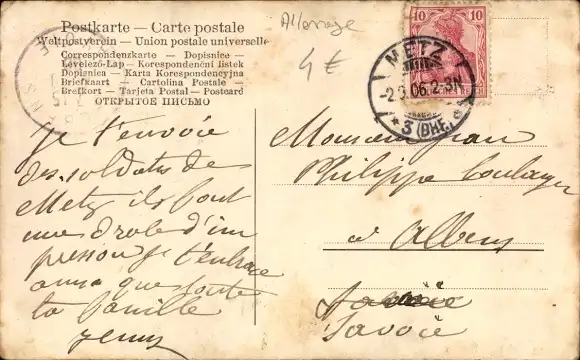 Postkarte — Carte postale
Weltpostverein — Union postale universelle
Correspondenzkarte — Dopisnice —
Levelező-Lap — Korespondenční lístek
Dopisnica — Karta Korespondencyjna
Briefkaart — Cartolina Postale —
Brefkort — Tarjeta Postal — Postcard
ОТКРЫТОЕ ПИСЬМО
Allemagne
4 €
10 10
METZ
2-3N
* 3 (BHF.)
Je t'envoie
des soldats de
Metz ils font
une drole d'im
pression je t'embrace
ainsi que toute
ta famille
Jenny
Monsieur Jean
Philippe
à Albens
Savoie
Savoie